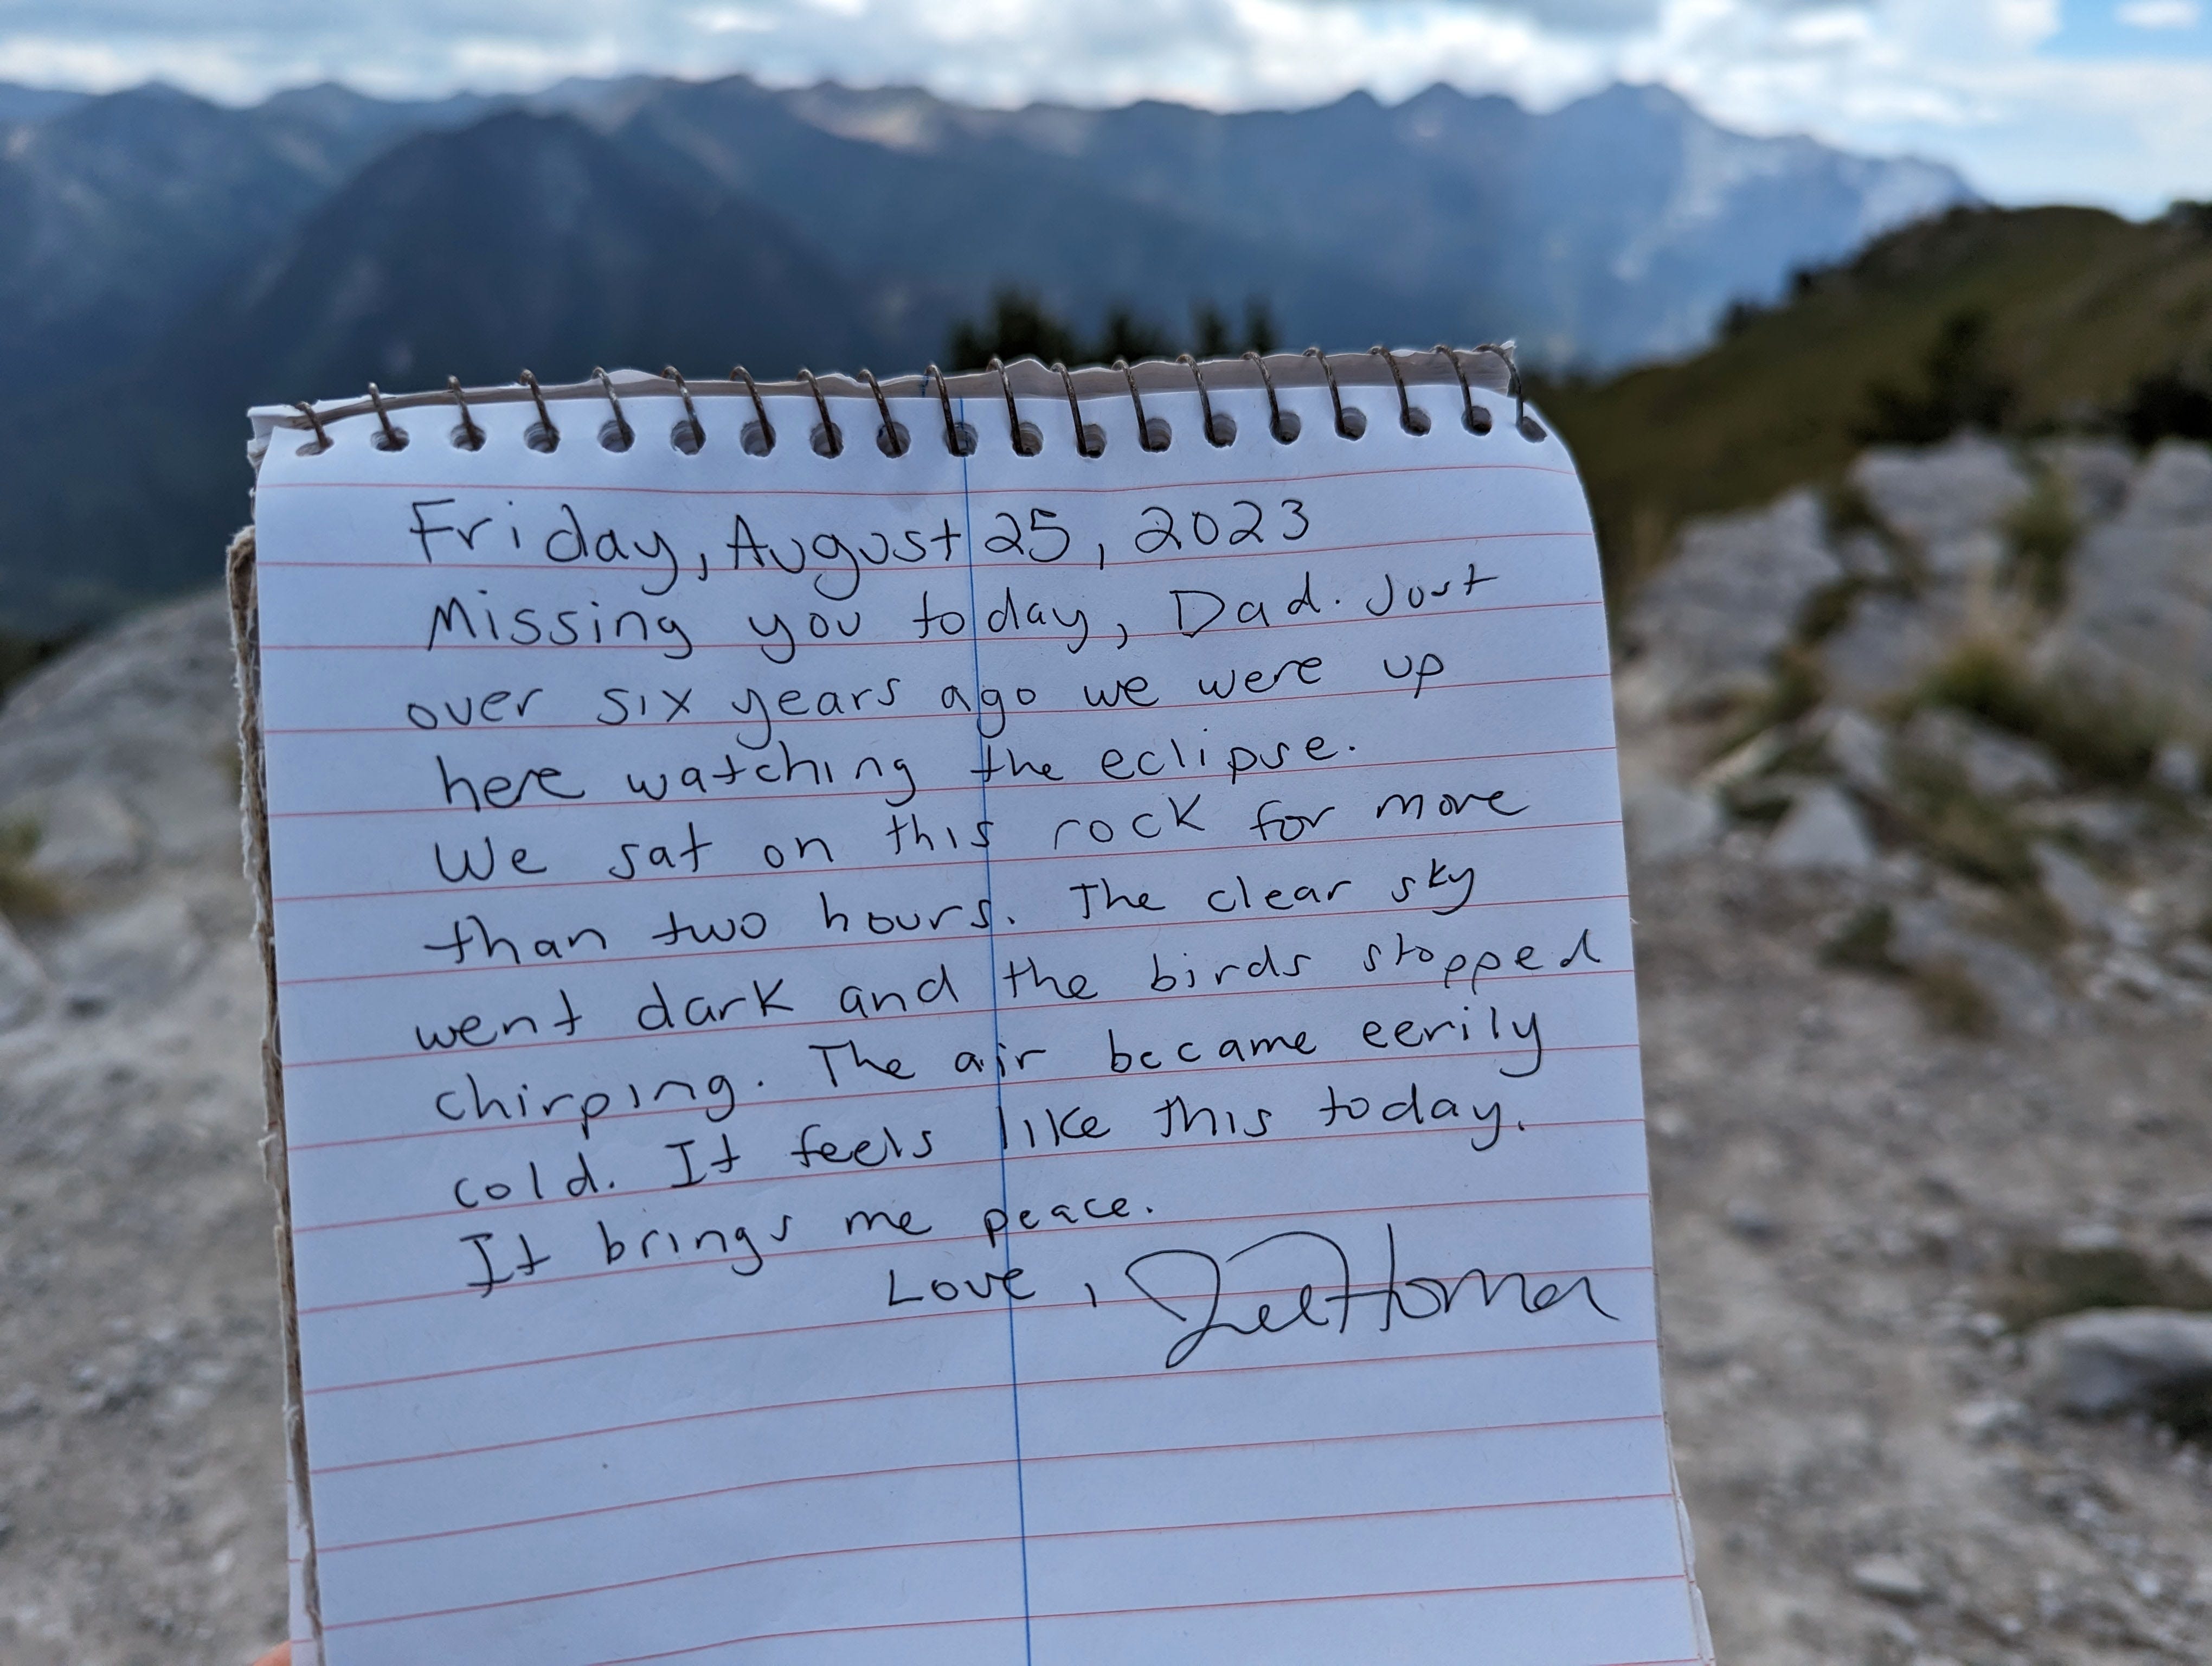 Friday, August 25, 2023
Missing you today, Dad. Just
over six years ago we were up
here watching the eclipse.
We sat on this rock for more
than two hours. The clear sky
went dark and the birds stopped
chirping. The air became eerily
cold. It feels like this today.
It brings me peace.
Love,